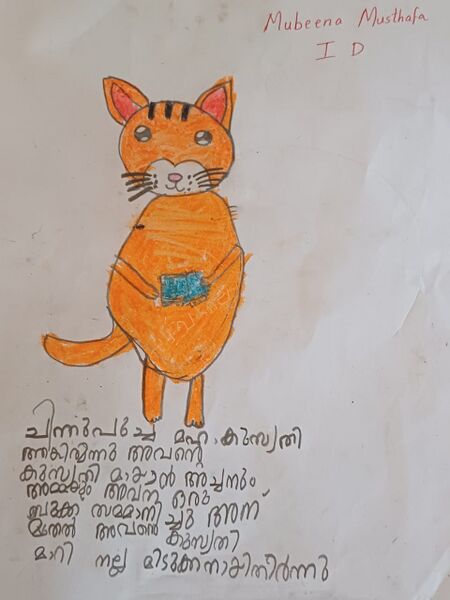 Mubeena Musthafa
I D
ചിന്നുപൂച്ച മഹാ കുസൃതി
അവന്റെ
കുസൃതി മാറ്റാൻ അച്ചനും
അമ്മയും അവന ഒരു
ബുക്ക സമ്മാനിച്ചു അന്ന്
മുതൽ അവന്റെ കുസൃതി
മാറി നല്ല മിടുക്കനായിതീർന്നു